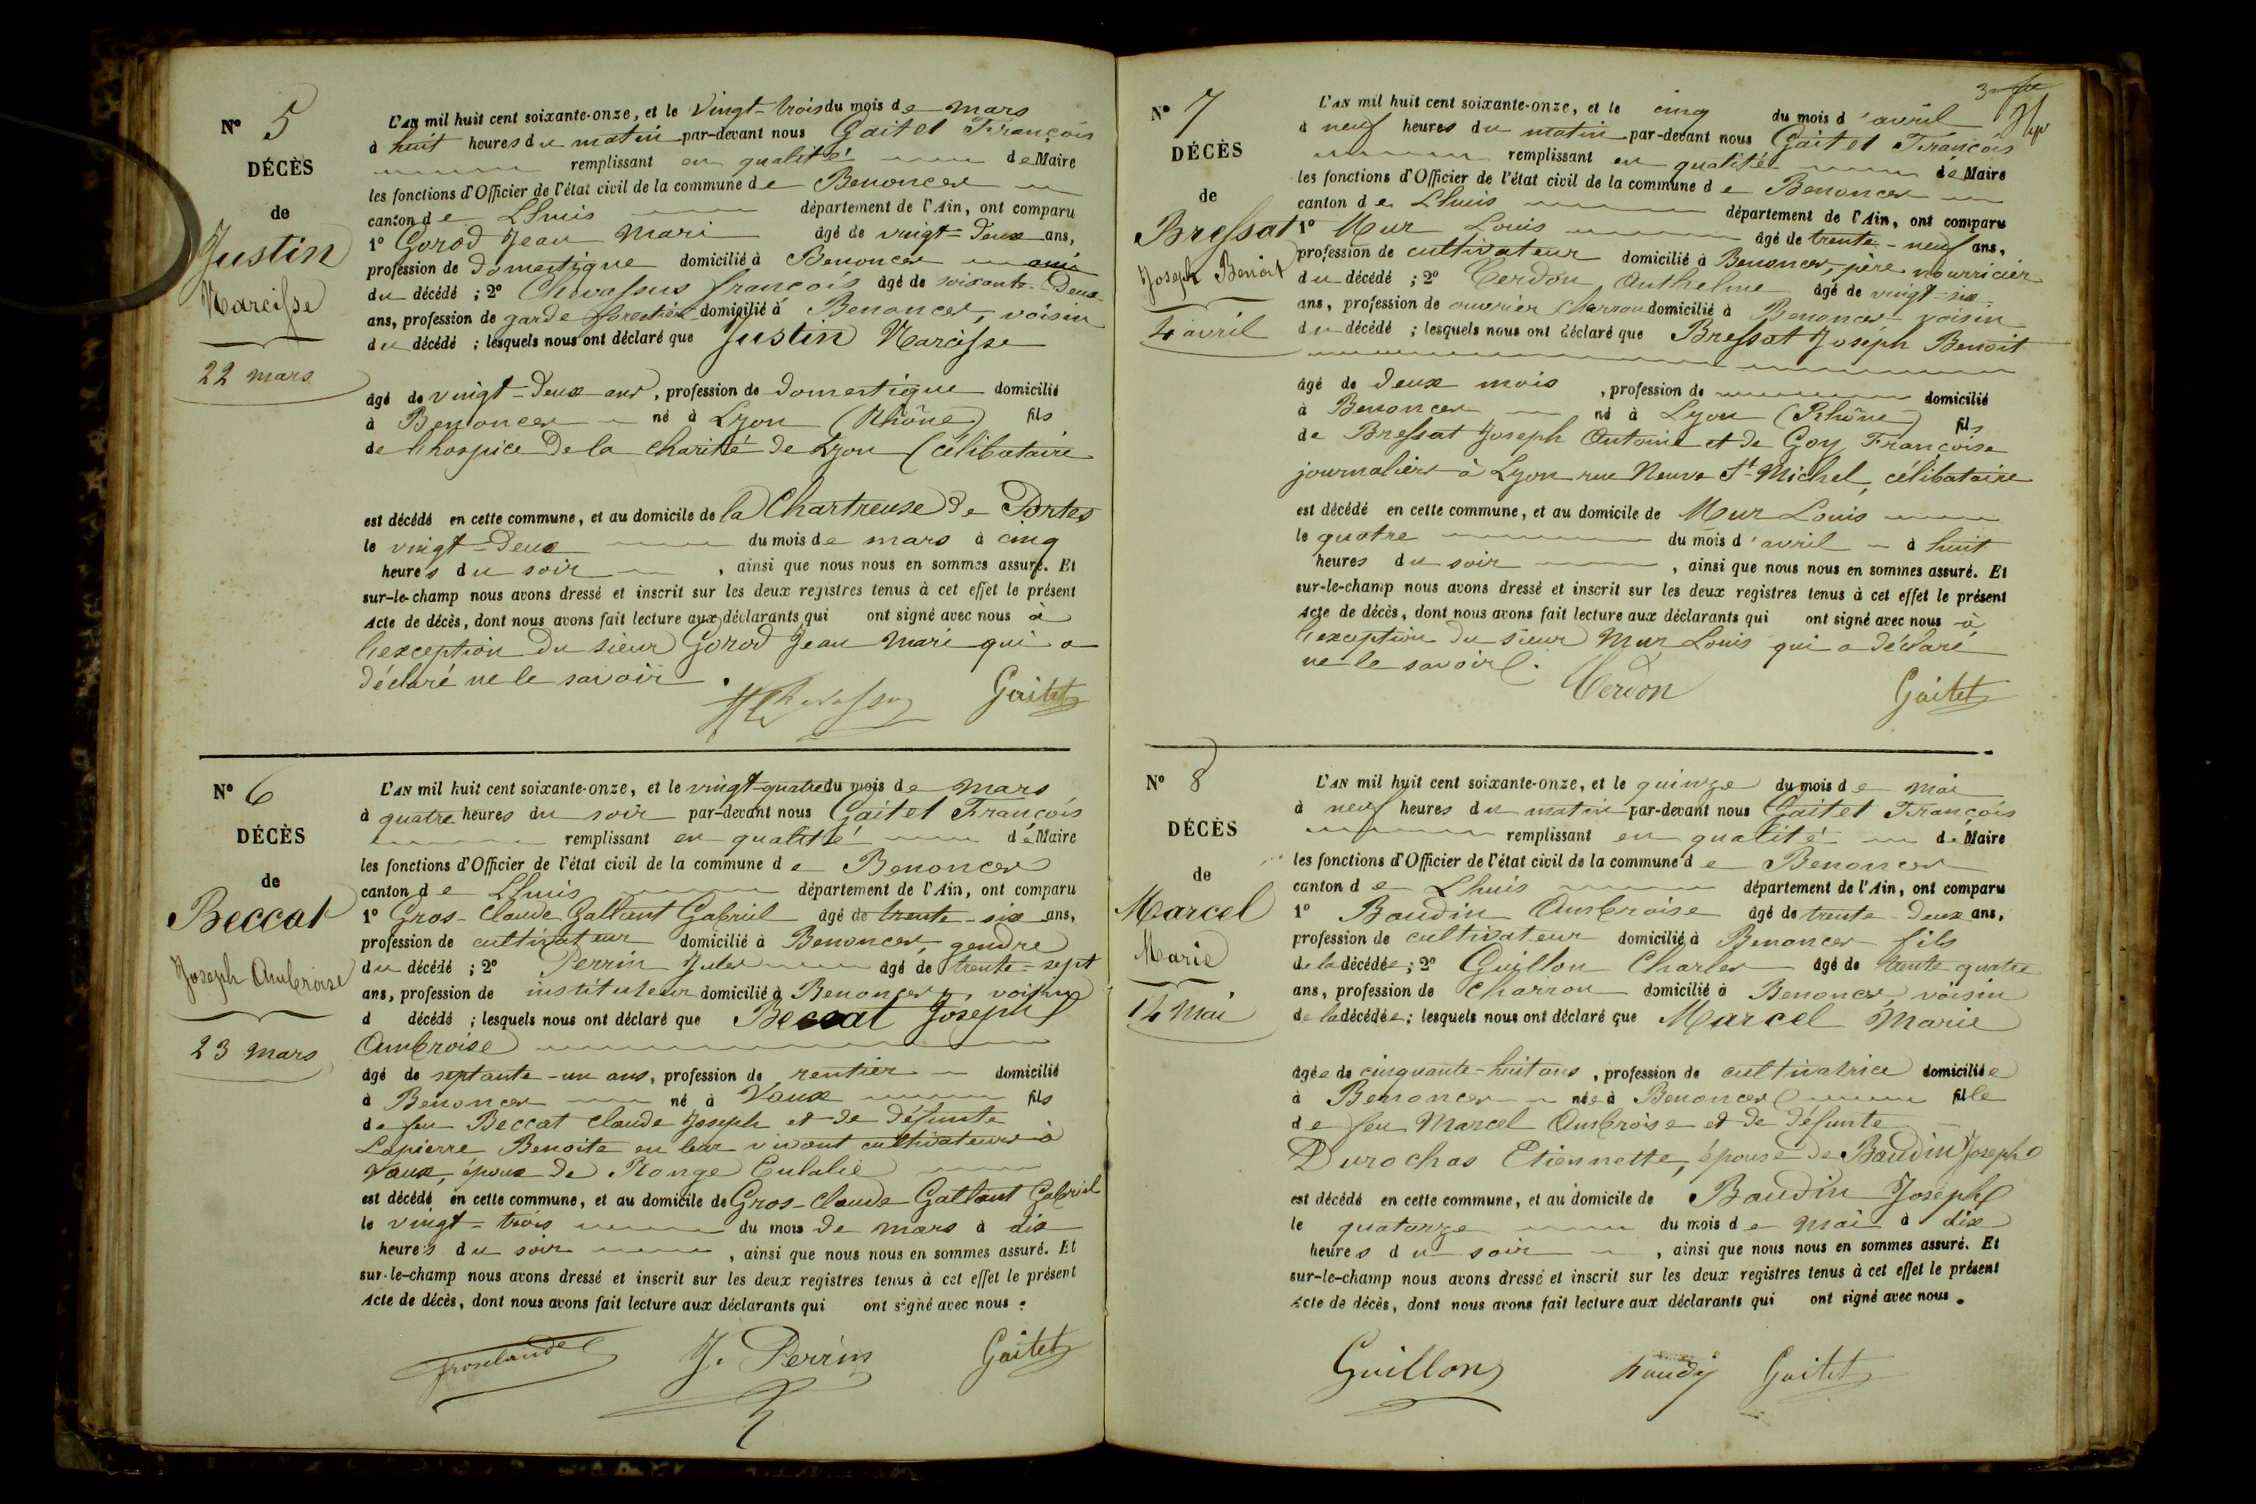 N° 5
DÉCÈS
de
Justin
Narcisse
22 mars
L'AN mil huit cent soixante-onze, et le vingt-trois du mois de mars
à huit heures du matin par-devant nous Gaitet François
remplissant en qualité de Maire
les fonctions d'Officier de l'état civil de la commune de Benonces
canton de Lhuis département de l'Ain, ont comparu
1° Gorod Jean Mari âgé de vingt-deux ans,
profession de domestique domicilié à Benonces ami
du décédé ; 2° Chevassus françois âgé de soixante-deux
ans, profession de garde forestier domicilié à Benonces, voisin
du décédé ; lesquels nous ont déclaré que Justin Narcisse
âgé de vingt-deux ans, profession de domestique domicilié
à Benonces né à Lyon (Rhône) fils
de l'hospice de la charité de Lyon (célibataire
est décédé en cette commune, et au domicile de la Chartreuse de Portes
le vingt-deux du mois de mars à cinq
heures du soir, ainsi que nous nous en sommes assuré. Et
sur-le-champ nous avons dressé et inscrit sur les deux registres tenus à cet effet le présent
Acte de décès, dont nous avons fait lecture aux déclarants qui ont signé avec nous à
l'exception du sieur Gorod Jean Mari qui a
déclaré ne le savoir.
Gaitet
N° 6
DÉCÈS
de
Beccat
Joseph Ambroise
23 mars
L'AN mil huit cent soixante-onze, et le vingt-quatre du mois de mars
à quatre heures du soir par-devant nous Gaitet François
remplissant en qualité de Maire
les fonctions d'Officier de l'état civil de la commune de Benonces
canton de Lhuis département de l'Ain, ont comparu
1° Gros-claude Gallant Gabriel âgé de trente-six ans,
profession de cultivateur domicilié à Benonces gendre
du décédé ; 2° Perrin Jules âgé de trente-sept
ans, profession de instituteur domicilié à Benonces, voisin
d décédé ; lesquels nous ont déclaré que Beccat Joseph
Ambroise
âgé de septante-un ans, profession de rentier domicilié
à Benonces né à Vaux fils
de feu Beccat Claude Joseph et de défunte
Lapierre Benoite en leur vivant cultivateurs à
Vaux, époux de Ronge Eulalie
est décédé en cette commune, et au domicile de Gros-claude Gallant Gabriel
le vingt-trois du mois de mars à dix
heures du soir, ainsi que nous nous en sommes assuré. Et
sur-le-champ nous avons dressé et inscrit sur les deux registres tenus à cet effet le présent
Acte de décès, dont nous avons fait lecture aux déclarants qui ont signé avec nous.
Grosclaude J. Perrin Gaitet
N° 7
DÉCÈS
de
Bressat
Joseph Benoit
4 avril
L'AN mil huit cent soixante-onze, et le cinq du mois d'avril
à neuf heures du matin par-devant nous Gaitet François
remplissant en qualité de Maire
les fonctions d'Officier de l'état civil de la commune de Benonces
canton de Lhuis département de l'Ain, ont comparu
1° Mur Louis âgé de trente-neuf ans,
profession de cultivateur domicilié à Benonces, père nourricier
du décédé ; 2° Cerdon Anthelme âgé de vingt-six
ans, profession de ouvrier charron domicilié à Benonces voisin
du décédé ; lesquels nous ont déclaré que Bressat Joseph Benoit
âgé de deux mois, profession de domicilié
à Benonces né à Lyon (Rhône) fils
de Bressat Joseph Antoine et de Goy Françoise
journaliers à Lyon rue Neuve St-Michel, célibataire
est décédé en cette commune, et au domicile de Mur Louis
le quatre du mois d'avril à huit
heures du soir, ainsi que nous nous en sommes assuré. Et
sur-le-champ nous avons dressé et inscrit sur les deux registres tenus à cet effet le présent
Acte de décès, dont nous avons fait lecture aux déclarants qui ont signé avec nous à
l'exception du sieur Mur Louis qui a déclaré
ne le savoir.
Cerdon Gaitet
N° 8
DÉCÈS
de
Marcel
Marie
14 Mai
L'AN mil huit cent soixante-onze, et le quinze du mois de mai
à neuf heures du matin par-devant nous Gaitet François
remplissant en qualité de Maire
les fonctions d'Officier de l'état civil de la commune de Benonces
canton de Lhuis département de l'Ain, ont comparu
1° Baudin Ambroise âgé de trente-deux ans,
profession de cultivateur domicilié à Benonces fils
de la décédée ; 2° Guillon Charles âgé de trente quatre
ans, profession de charron domicilié à Benonces, voisin
de la décédée ; lesquels nous ont déclaré que Marcel Marie
âgée de cinquante-huit ans, profession de cultivatrice domiciliée
à Benonces née à Benonces fille
de feu Marcel Ambroise et de défunte
Durochas Etiennette, épouse de Baudin Joseph
est décédé en cette commune, et au domicile de Baudin Joseph
le quatorze du mois de mai à dix
heures du soir, ainsi que nous nous en sommes assuré. Et
sur-le-champ nous avons dressé et inscrit sur les deux registres tenus à cet effet le présent
Acte de décès, dont nous avons fait lecture aux déclarants qui ont signé avec nous.
Guillon Gaitet